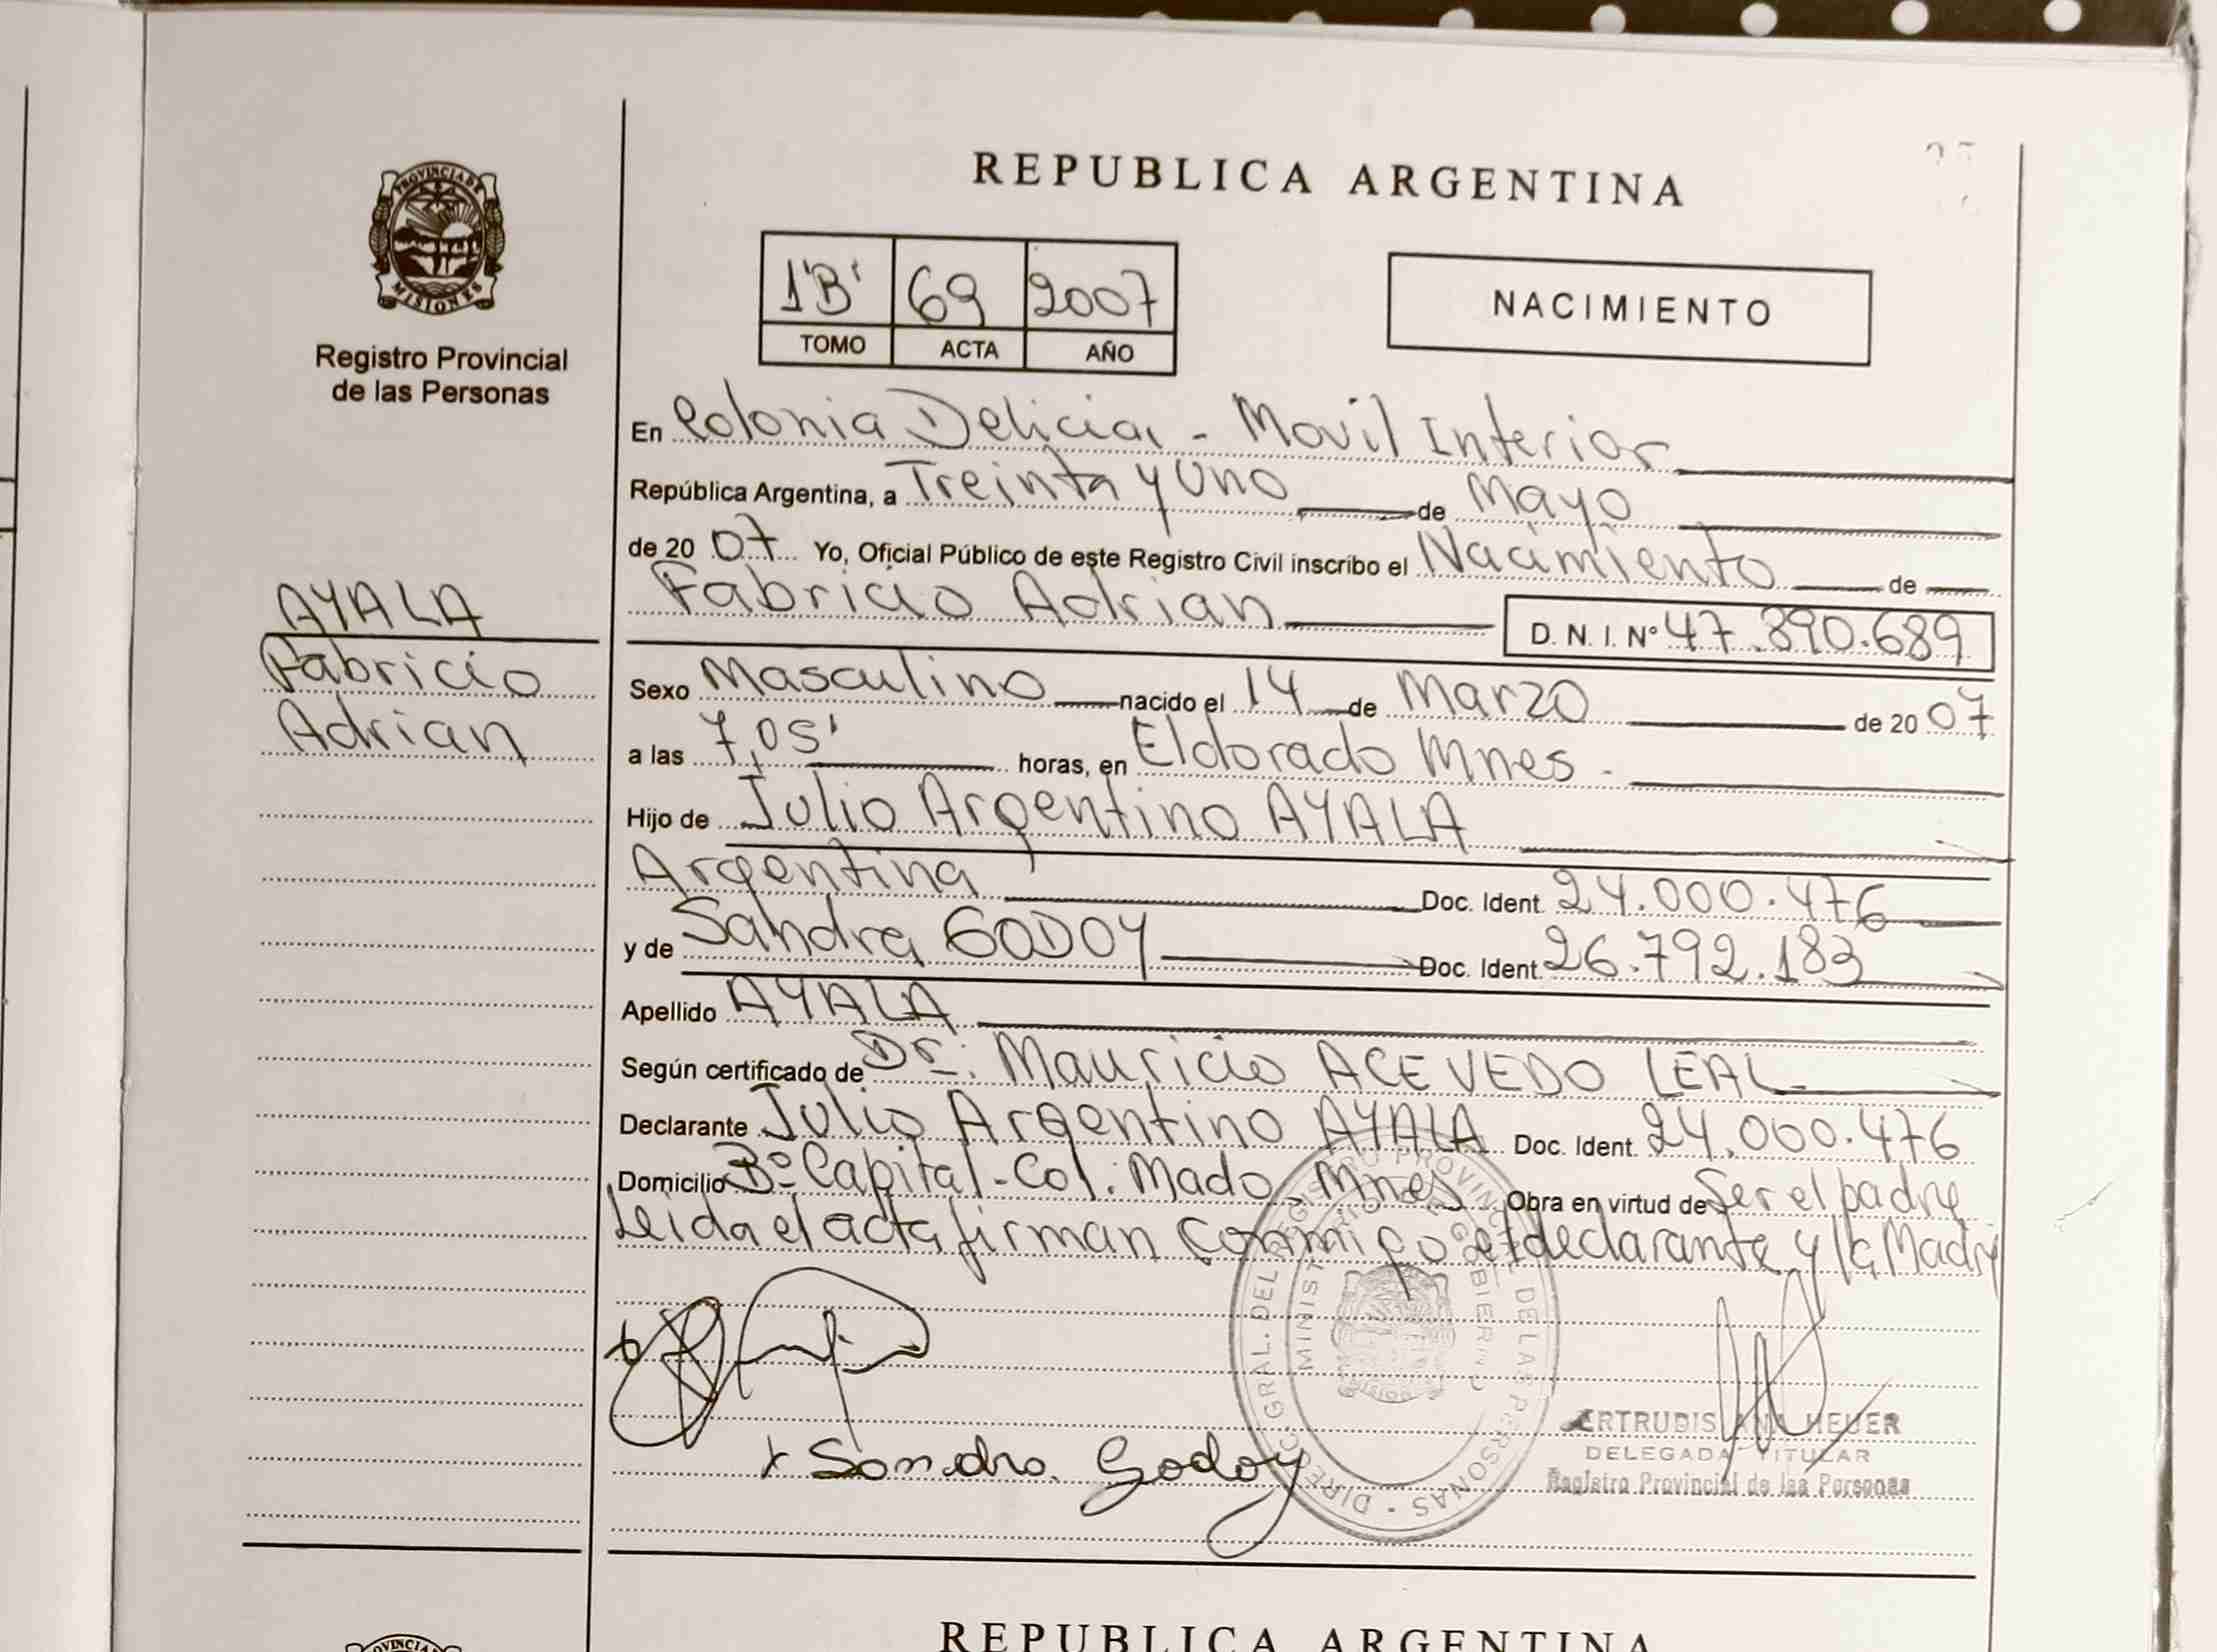 REPUBLICA ARGENTINA
PROVINCIA DE
MISIONES
Registro Provincial
de las Personas
1'B' 69 2007
TOMO ACTA AÑO
NACIMIENTO
En Colonia Delicias - Movil Interior
República Argentina, a Treinta y Uno de Mayo
de 20 07 Yo, Oficial Público de este Registro Civil inscribo el Nacimiento de
Fabricio Adrian D. N. I. Nº 47.890.689
AYALA
Fabricio
Adrian
Sexo Masculino nacido el 14 de Marzo de 20 07
a las 7,05' horas, en Eldorado Mnes -
Hijo de Julio Argentino AYALA
Argentina Doc. Ident. 24.000.476
y de Sandra GODOY Doc. Ident. 26.792.183
Apellido AYALA
Según certificado de Dr. Mauricio ACEVEDO LEAL
Declarante Julio Argentino AYALA Doc. Ident. 24.000.476
Domicilio Bº Capital - Col. Mado - Mnes Obra en virtud de Ser el padre
Leida el acta firman conmigo el declarante y la Madre
Sandra Godoy
ERTRUDIS ANA HEUER
DELEGADA TITULAR
Registro Provincial de las Personas
DIREC. GRAL. DEL REGISTRO PROVINCIAL DE LAS PERSONAS
MINISTERIO DE GOBIERNO
MISIONES
PROVINCIA
REPUBLICA ARGENTINA